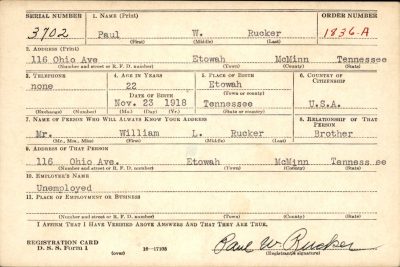 SERIAL NUMBER 1. NAME (Print) ORDER NUMBER
3702 Paul W. Rucker 1836-A
(First) (Middle) (Last)
2. ADDRESS (Print)
116 Ohio Ave Etowah McMinn Tennessee
(Number and street or R. F. D. number) (Town) (County) (State)
3. TELEPHONE 4. AGE IN YEARS 5. PLACE OF BIRTH 6. COUNTRY OF CITIZENSHIP
none 22 Etowah
DATE OF BIRTH (Town or county)
Nov. 23 1918 Tennessee U.S.A.
(Exchange) (Number) (Mo.) (Day) (Yr.) (State or country)
7. NAME OF PERSON WHO WILL ALWAYS KNOW YOUR ADDRESS 8. RELATIONSHIP OF THAT PERSON
Mr. William L. Rucker Brother
(Mr., Mrs., Miss) (First) (Middle) (Last)
9. ADDRESS OF THAT PERSON
116 Ohio Ave. Etowah McMinn Tennessee
(Number and street or R. F. D. number) (Town) (County) (State)
10. EMPLOYER'S NAME
Unemployed
11. PLACE OF EMPLOYMENT OR BUSINESS
(Number and street or R. F. D. number) (Town) (County) (State)
I AFFIRM THAT I HAVE VERIFIED ABOVE ANSWERS AND THAT THEY ARE TRUE.
REGISTRATION CARD
D. S. S. Form 1 (over) 16—17105 Paul W. Rucker
(Registrant's signature)